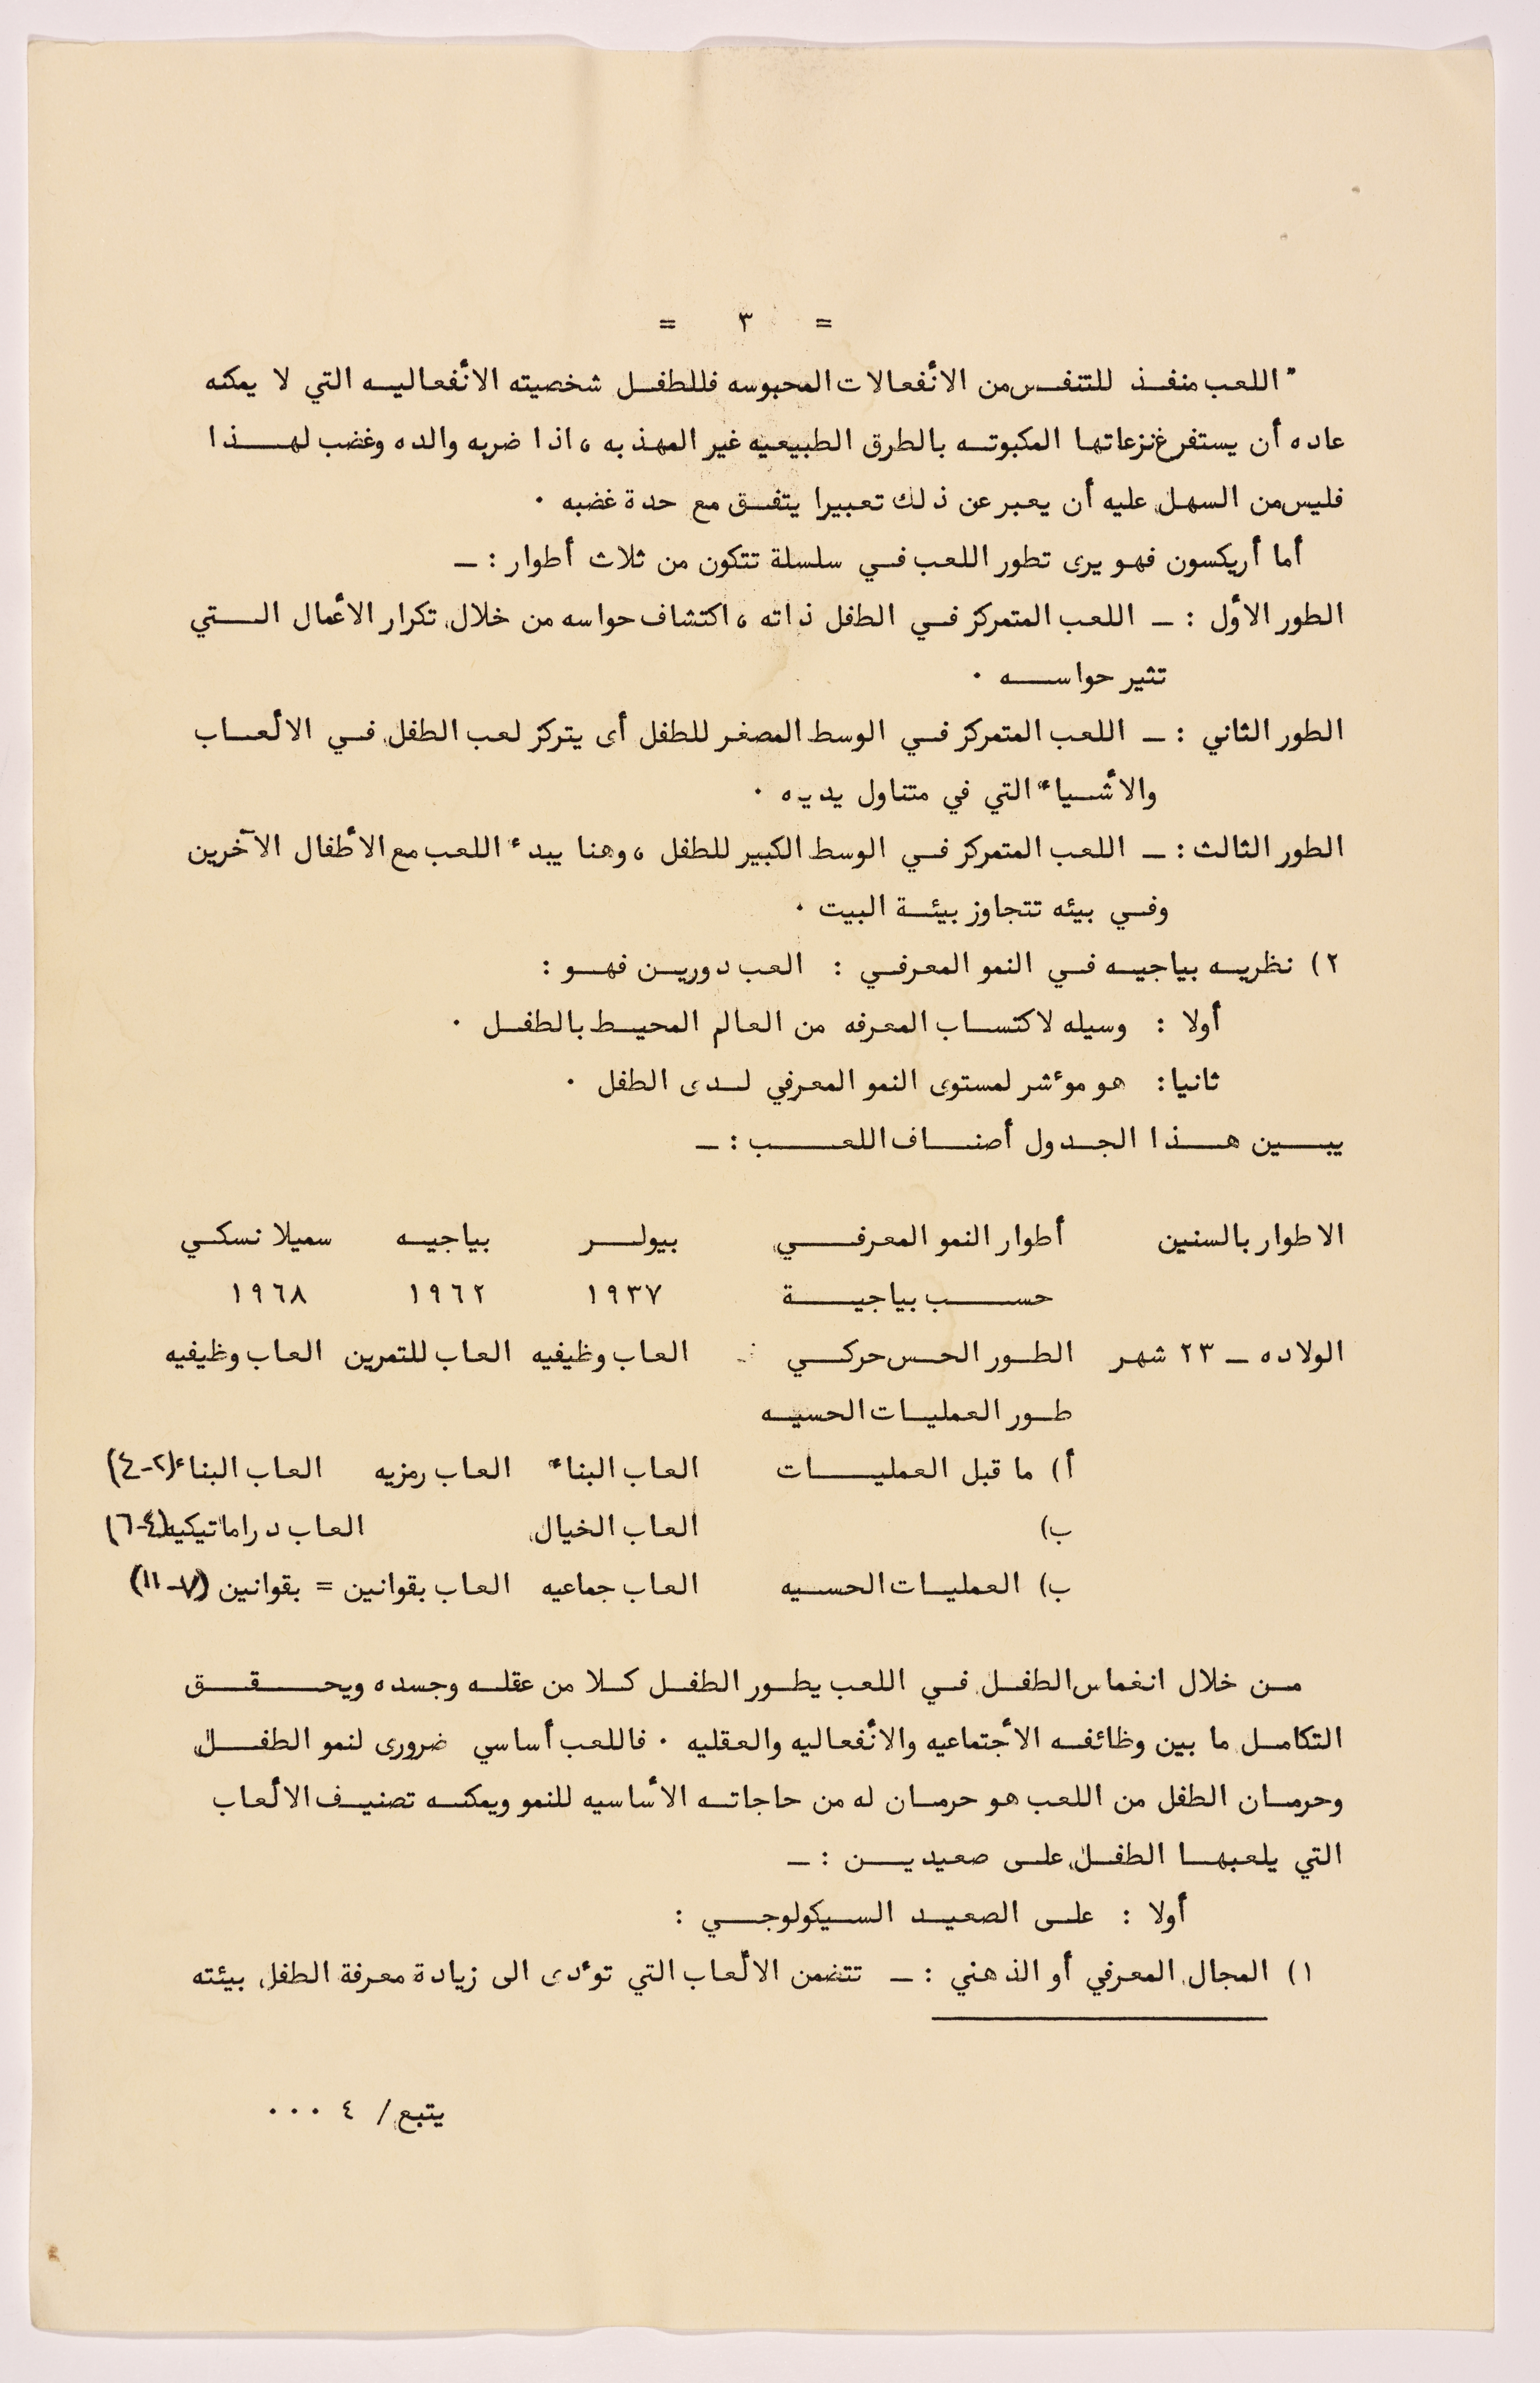 = ٣ =
" اللعب منفذ للتنفس من الأنفعالات المحبوسه فللطفل شخصيته الأنفعاليه التي لا يمكنه
عاده أن يستفرغ نزعاتها المكبوته بالطرق الطبيعيه غير المهذبه ، اذا ضربه والده وغضب لهذا
فليس من السهل عليه أن يعبر عن ذلك تعبيرا يتفق مع حدة غضبه .
أما أريكسون فهو يرى تطور اللعب في سلسلة تتكون من ثلاث أطوار : ـ
الطور الأول : ـ اللعب المتمركز في الطفل ذاته ، اكتشاف حواسه من خلال تكرار الأعمال التي
تثير حواسه .
الطور الثاني : ـ اللعب المتمركز في الوسط المصغر للطفل أى يتركز لعب الطفل في الألعاب
والأشياء التي في متناول يديه .
الطور الثالث : ـ اللعب المتمركز في الوسط الكبير للطفل ، وهنا يبدء اللعب مع الأطفال الآخرين
وفي بيئه تتجاوز بيئة البيت .
٢) نظريه بياجيه في النمو المعرفي : العب دورين فهو :
أولا : وسيله لاكتساب المعرفه من العالم المحيط بالطفل .
ثانيا : هو موٴشر لمستوى النمو المعرفي لدى الطفل .
يبين هذا الجدول أصناف اللعب : ـ
الاطوار بالسنين أطوار النمو المعرفي بيولر بياجيه سميلانسكي
حسب بياجية ١٩٣٧ ١٩٦٢ ١٩٦٨
الولاده ـ ٢٣ شهر الطور الحس حركي العاب وظيفيه العاب للتمرين العاب وظيفيه
طور العمليات الحسيه
أ) ما قبل العمليات العاب البناء العاب رمزيه العاب البناء (٢-٤)
ب) العاب الخيال العاب دراماتيكيه (٤-٦)
ب) العمليات الحسيه العاب جماعيه العاب بقوانين = بقوانين (٧-١١)
من خلال انغماس الطفل في اللعب يطور الطفل كلا من عقله وجسده ويحقق
التكامل ما بين وظائفه الأجتماعيه والأنفعاليه والعقليه . فاللعب أساسي ضرورى لنمو الطفل
وحرمان الطفل من اللعب هو حرمان له من حاجاته الأساسيه للنمو ويمكنه تصنيف الألعاب
التي يلعبها الطفل على صعيدين : ـ
أولا : على الصعيد السيكولوجي :
١) المجال المعرفي أو الذهني : ـ تتضمن الألعاب التي توٴدى الى زيادة معرفة الطفل بيئته
يتبع / ٤ ...